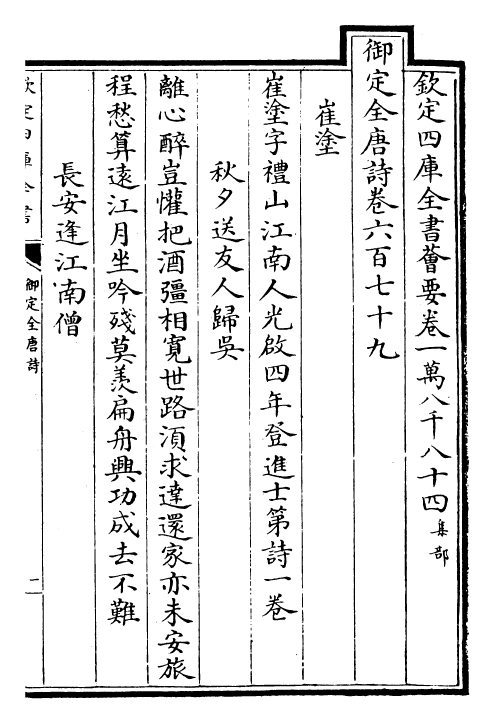 欽定四庫全書薈要卷一萬八千八十四集部
御定全唐詩卷六百七十九
崔塗
崔塗字禮山江南人光啟四年登進士第詩一卷
秋夕送友人歸吳
離心醉豈懽把酒彊相寛世路湏求達還家亦未安旅
程愁算逺江月坐吟殘莫羨扁舟興功成去不難
長安逢江南僧
欽定四庫全書
御定全唐詩
二